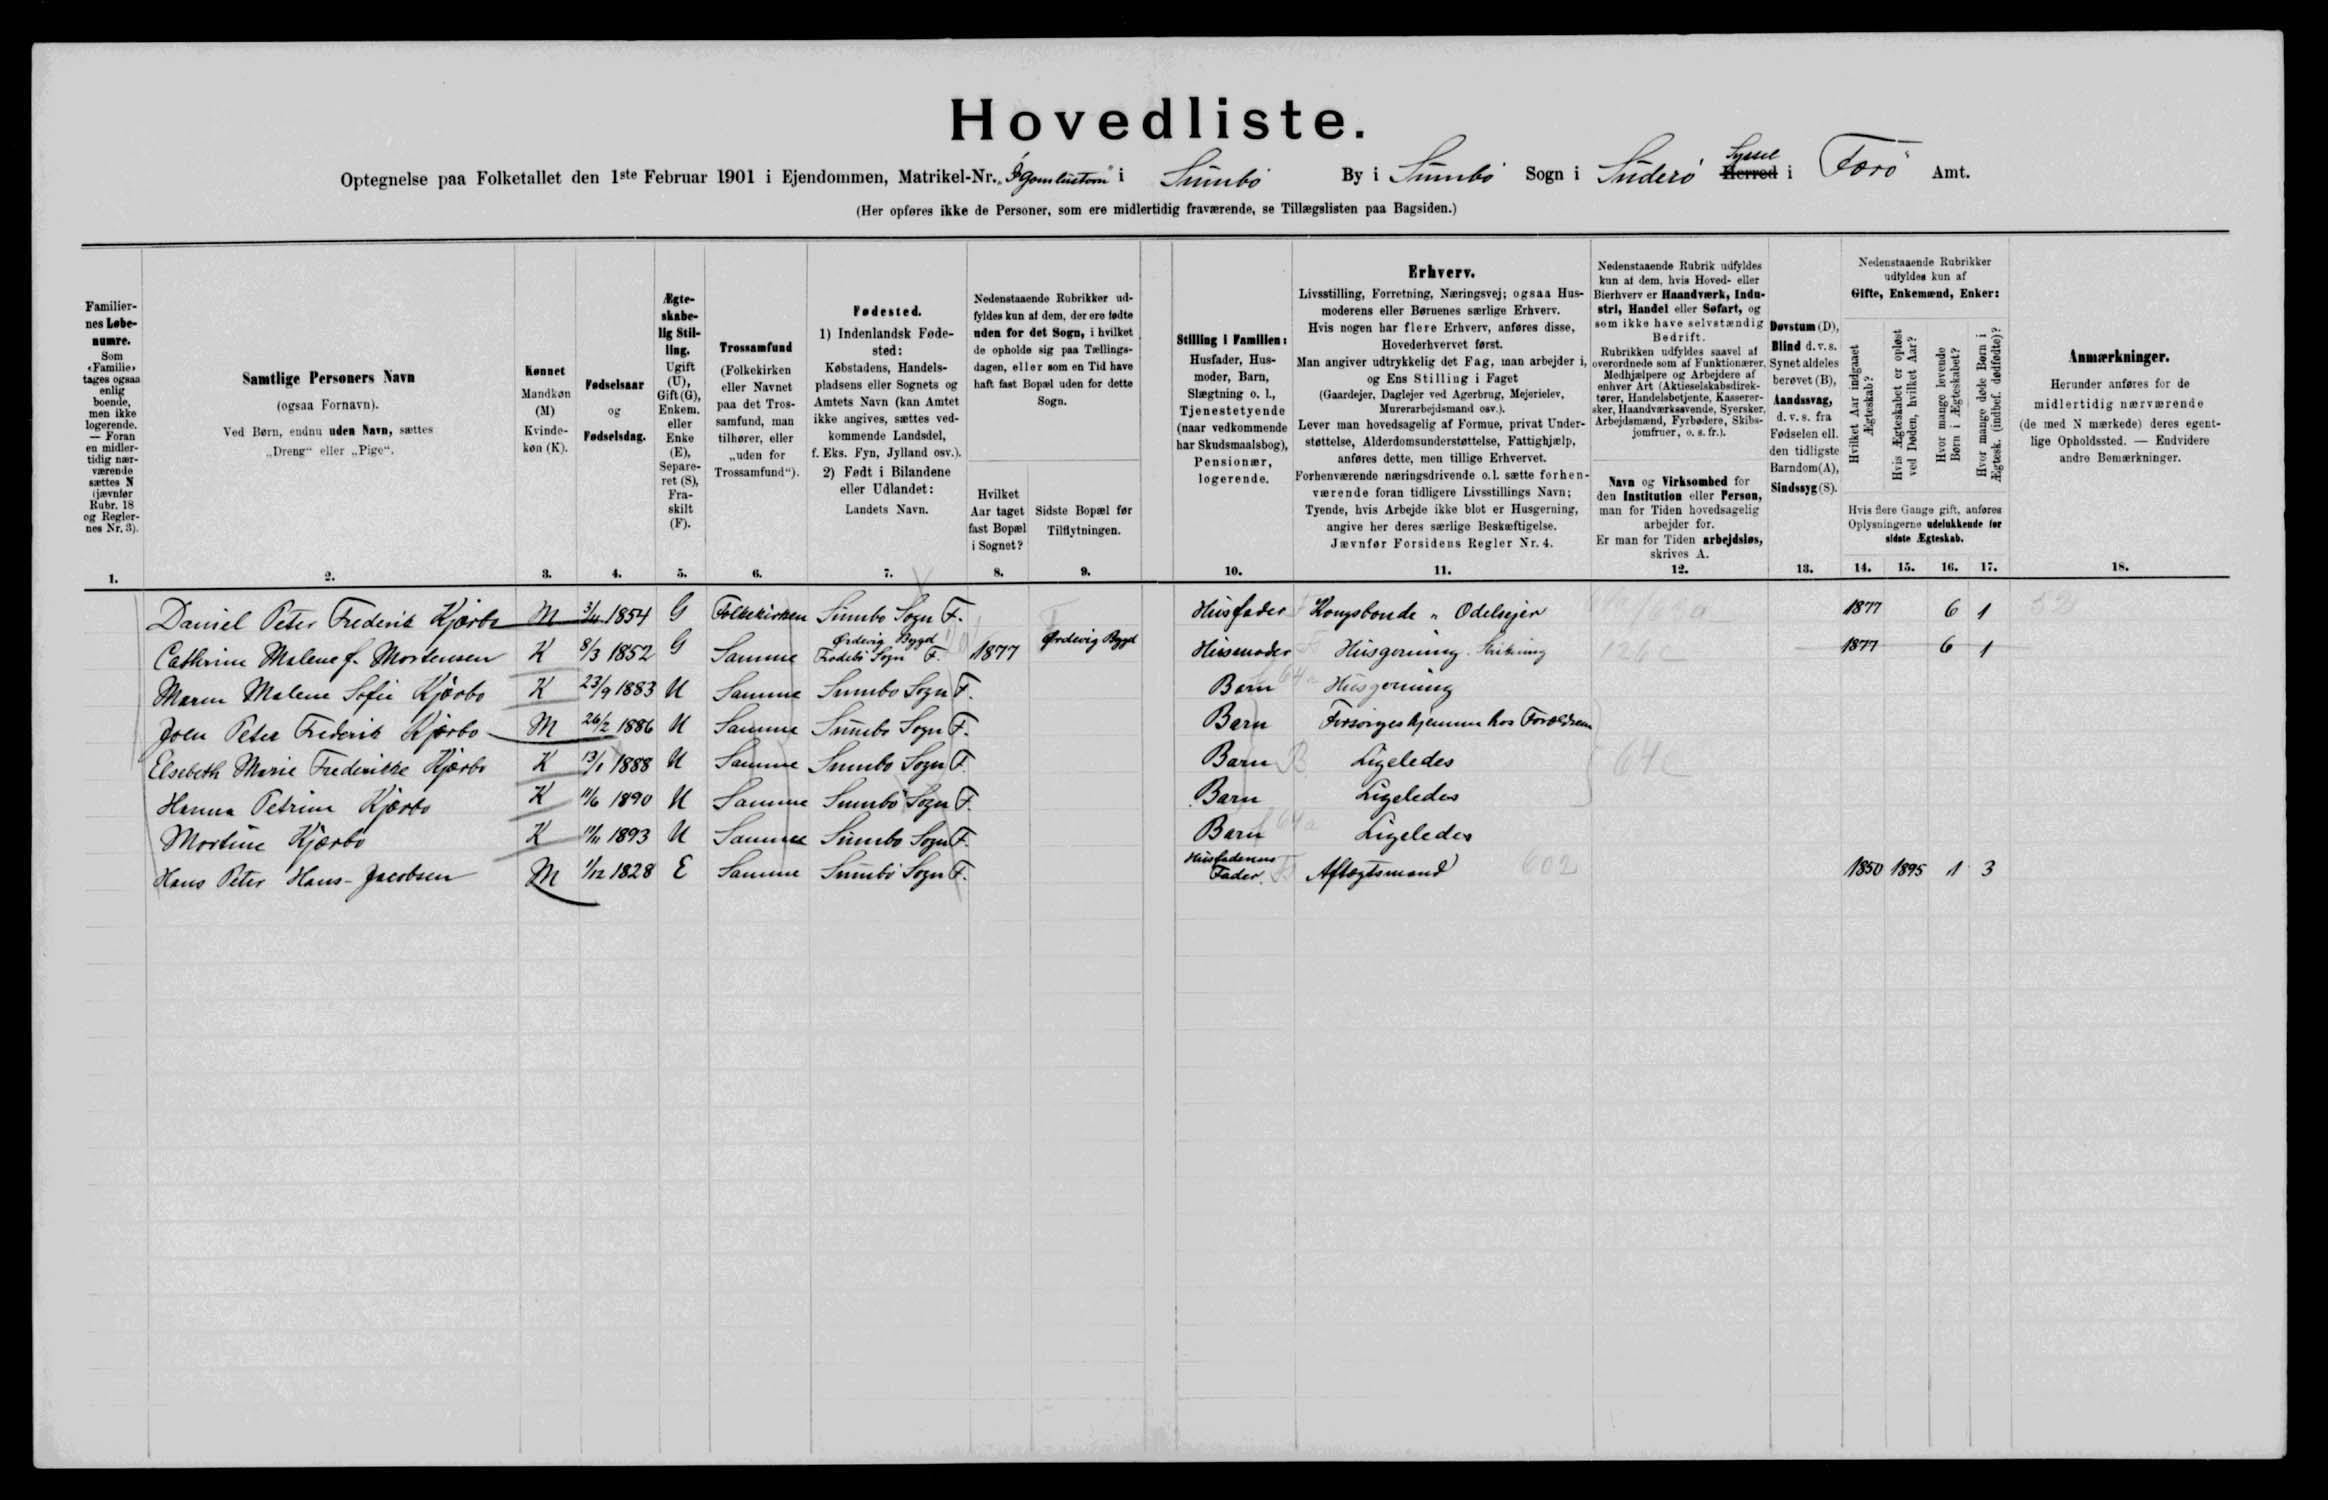 Hovedliste.
Optegnelse paa Folketallet den 1ste Februar 1901 i Ejendommen, Matrikel-Nr. i Sumbö By i Sumbö Sogn i Suderö Syssel Herred i Færö Amt.
(Her opføres ikke de Personer, som ere midlertidig fraværende, se Tillægslisten paa Bagsiden.)
Familiernes Løbenumre.
Som «Familie» tages ogsaa enlig boende, men ikke logerende. — Foran en midlertidig nærværende sættes N (jævnfør Rubr. 18 og Reglernes Nr. 3).
1.
Samtlige Personers Navn
(ogsaa Fornavn).
Ved Børn, endnu uden Navn, sættes „Dreng“ eller „Pige“.
2.
Kønnet
Mandkøn (M)
Kvindekøn (K).
3.
Fødselsaar og Fødselsdag.
4.
Ægteskabelig Stilling.
Ugift (U), Gift (G), Enkem. eller Enke (E), Separeret (S), Fraskilt (F).
5.
Trossamfund
(Folkekirken eller Navnet paa det Trossamfund, man tilhører, eller „uden for Trossamfund“).
6.
Fødested.
1) Indenlandsk Fødested:
Købstadens, Handelspladsens eller Sognets og Amtets Navn (kan Amtet ikke angives, sættes vedkommende Landsdel, f. Eks. Fyn, Jylland osv.).
2) Født i Bilandene eller Udlandet:
Landets Navn.
7.
Nedenstaaende Rubrikker udfyldes kun af dem, der ere fødte uden for det Sogn, i hvilket de opholde sig paa Tællingsdagen, eller som en Tid have haft fast Bopæl uden for dette Sogn.
Hvilket Aar taget fast Bopæl i Sognet?
8.
Sidste Bopæl før Tilflytningen.
9.
Stilling i Familien:
Husfader, Husmoder, Barn, Slægtning o. l., Tjenestetyende (naar vedkommende har Skudsmaalsbog), Pensionær, logerende.
10.
Erhverv.
Livsstilling, Forretning, Næringsvej; ogsaa Husmoderens eller Børnenes særlige Erhverv.
Hvis nogen har flere Erhverv, anføres disse, Hovederhvervet først.
Man angiver udtrykkelig det Fag, man arbejder i, og Ens Stilling i Faget
(Gaardejer, Daglejer ved Agerbrug, Mejerielev, Murerarbejdsmand osv.).
Lever man hovedsagelig af Formue, privat Understøttelse, Alderdomsunderstøttelse, Fattighjælp, anføres dette, men tillige Erhvervet.
Forhenværende næringsdrivende o. l. sætte forhenværende foran tidligere Livsstillings Navn;
Tyende, hvis Arbejde ikke blot er Husgerning, angive her deres særlige Beskæftigelse.
Jævnfør Forsidens Regler Nr. 4.
11.
Nedenstaaende Rubrik udfyldes kun af dem, hvis Hoved- eller Bierhverv er Haandværk, Industri, Handel eller Søfart, og som ikke have selvstændig Bedrift.
Rubrikken udfyldes saavel af overordnede som af Funktionærer, Medhjælpere og Arbejdere af enhver Art (Aktieselskabsdirektører, Handelsbetjente, Kasserersker, Haandværkssvende, Syersker, Arbejdsmænd, Fyrbødere, Skibsjomfruer, o. s. fr.).
Navn og Virksomhed for den Institution eller Person, man for Tiden hovedsagelig arbejder for.
Er man for Tiden arbejdsløs, skrives A.
12.
Døvstum (D), Blind d. v. s. Synet aldeles berøvet (B), Aandssvag, d. v. s. fra Fødselen ell. den tidligste Barndom (A), Sindssyg (S).
13.
Nedenstaaende Rubrikker udfyldes kun af Gifte, Enkemænd, Enker:
Hvilket Aar indgaaet Ægteskab?
Hvis Ægteskabet er opløst ved Døden, hvilket Aar?
Hvor mange levende Børn i Ægteskabet?
Hvor mange døde Børn i Ægtesk. (indbef. dødfødte)?
Hvis flere Gange gift, anføres Oplysningerne udelukkende for sidste Ægteskab.
14. 15. 16. 17.
Anmærkninger.
Herunder anføres for de midlertidig nærværende (de med N mærkede) deres egentlige Opholdssted. — Endvidere andre Bemærkninger.
18.
Daniel Peter Frederik Kjærbo M 3/11 1854 G Folkekirken Sumbo Sogn F. Husfader Kongsbonde " Odelsejer 1877 6 1
Cathrine Malene f. Mortensen K 8/3 1852 G Samme Ördevig Bygd Frodebö Sogn F. 1877 Ördevig Bygd Husmoder Husgerning 126c 1877 6 1
Maren Malene Sofie Kjærbo K 23/9 1883 U Samme Sumbo Sogn F. Barn 64a Husgerning
Joen Peter Frederik Kjærbo M 26/2 1886 U Samme Sumbo Sogn F. Barn Forsörges hjemme hos Forældrene
Elsebeth Marie Frederikke Kjærbo K 13/1 1888 U Samme Sumbo Sogn F. Barn B Ligeledes 64c
Hanna Petrine Kjærbo K 11/6 1890 U Samme Sumbö Sogn F. Barn Ligeledes
Mortine Kjærbo K 11/11 1893 U Samme Sumbo Sogn F. Barn 64a Ligeledes
Hans Peter Hans-Jacobsen M 1/12 1828 E Samme Sumbö Sogn F. Husfaderens Fader Aftægtsmand 602 1850 1895 1 3